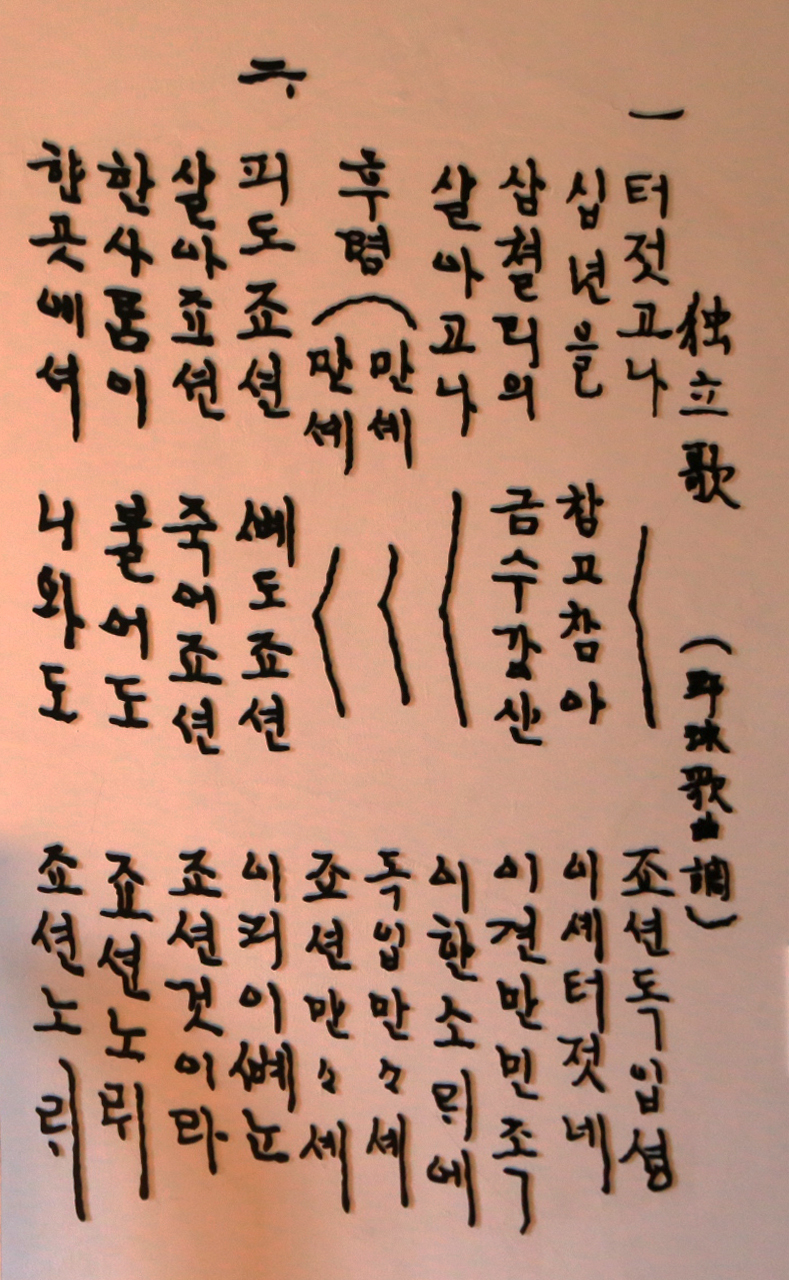 独立歌 (野球歌曲調)
一 터젓고나 〱 죠션독입셩
십년을 참고참아 이셰터젓네
삼쳘리의 금수강산 이쳔만민족
살아고나 〱 이한소ᄅᆡ에
후렴 ( 만셰 〱 독입만々셰
만셰 〱 죠션만々셰
六 피도죠션 뼤도죠션 이피이뼤눈
살아죠션 죽어죠션 죠션것이라
한사롬이 불어도 죠션노ᄅᆡ
한곳에셔 니와도 죠션노ᄅᆡ